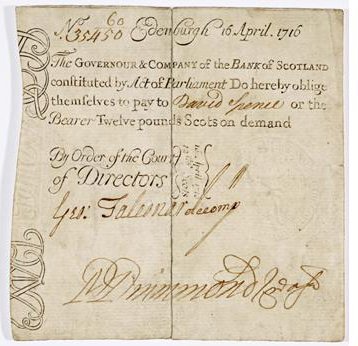 No 35450 60 Edenburgh 16 April. 1716
The GOVERNOUR & COMPANY of the BANK of SCOTLAND
constituted by Act of Parliament Do hereby oblige
themselves to pay to David Spence or the
Bearer Twelve pounds Scots on demand
By Order of the Court
of Directors
Geo:
Drummond